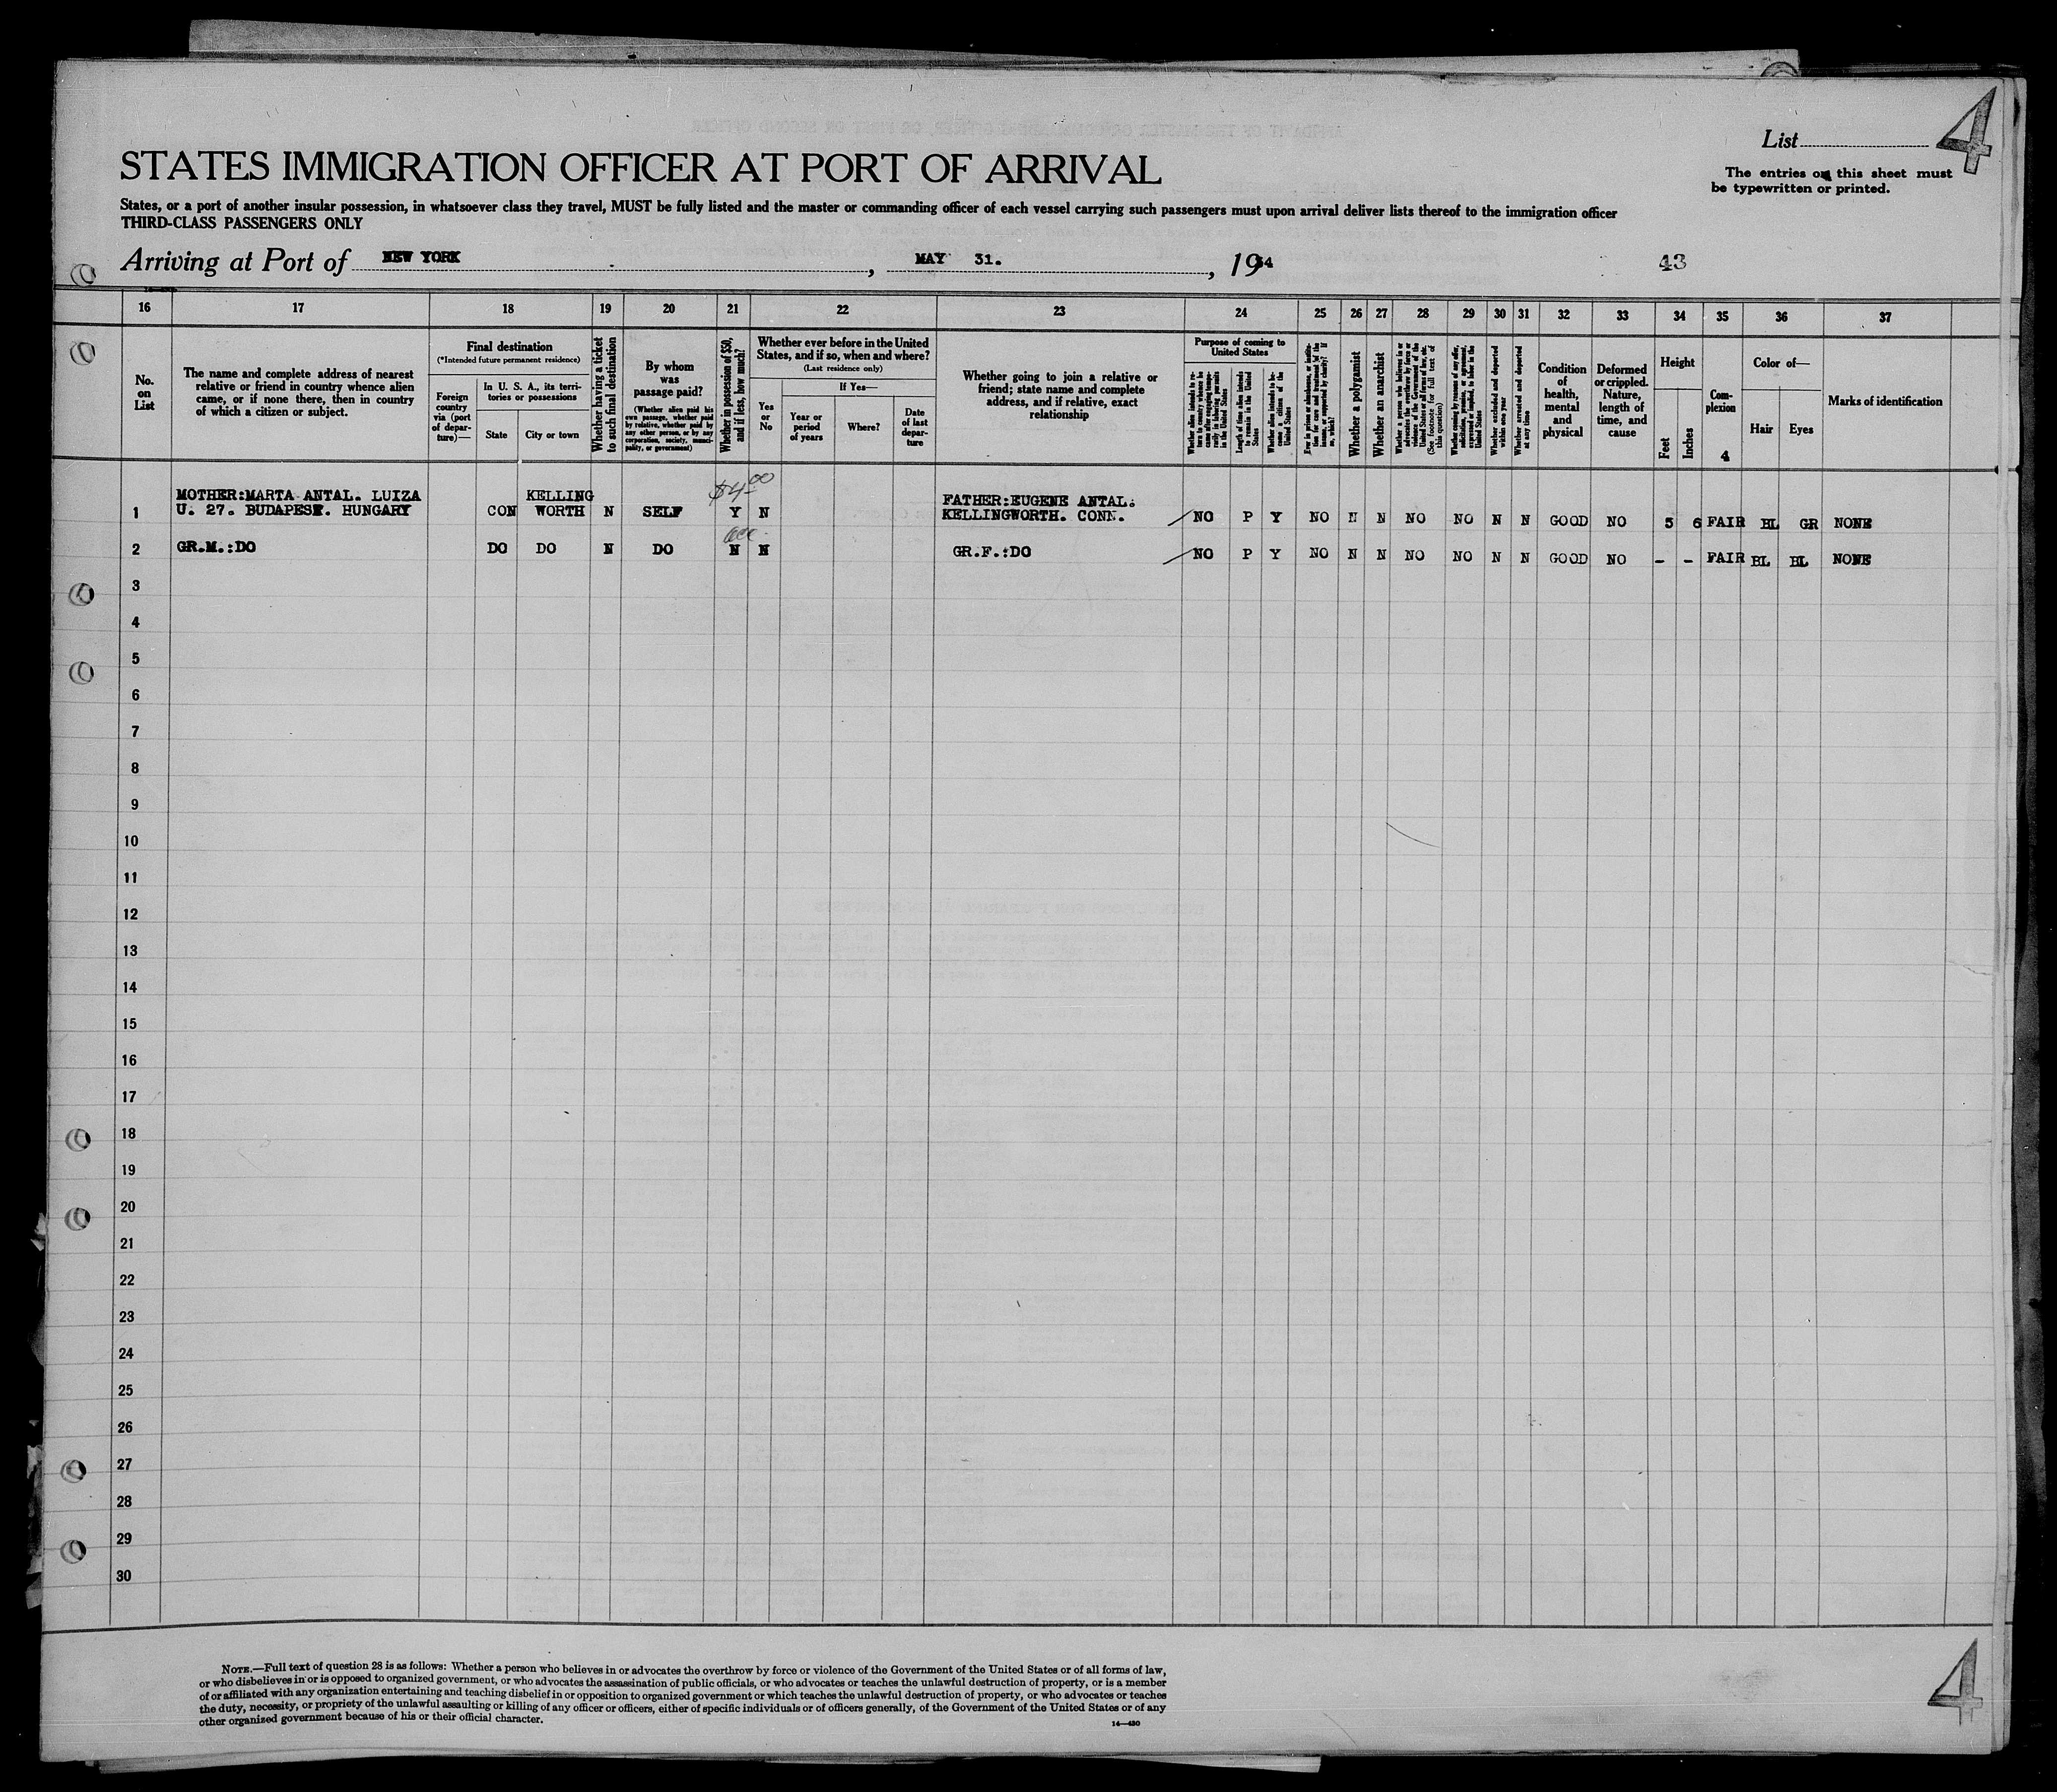 4
List
The entries on this sheet must
be typewritten or printed.
STATES IMMIGRATION OFFICER AT PORT OF ARRIVAL
States, or a port of another insular possession, in whatsoever class they travel, MUST be fully listed and the master or commanding officer of each vessel carrying such passengers must upon arrival deliver lists thereof to the immigration officer
THIRD-CLASS PASSENGERS ONLY
Arriving at Port of NEW YORK , MAY 31. , 1934
43
16 17 18 19 20 21 22 23 24 25 26 27 28 29 30 31 32 33 34 35 36 37
No.
on
List
The name and complete address of nearest
relative or friend in country whence alien
came, or if none there, then in country
of which a citizen or subject.
Final destination
(*Intended future permanent residence)
Foreign
country
via (port
of depar-
ture)—
In U. S. A., its terri-
tories or possessions
State
City or town
Whether having a ticket
to such final destination
By whom
was
passage paid?
(Whether alien paid his
own passage, whether paid
by relative, whether paid by
any other person, or by any
corporation, society, munici-
pality, or government)
Whether in possession of $50,
and if less, how much?
Whether ever before in the United
States, and if so, when and where?
(Last residence only)
Yes
or
No
If Yes—
Year or
period
of years
Where?
Date
of last
depar-
ture
Whether going to join a relative or
friend; state name and complete
address, and if relative, exact
relationship
Purpose of coming to
United States
Whether alien intends to re-
turn to country whence he
came after engaging tempo-
rarily in laboring pursuits
in the United States
Length of time alien intends
to remain in the United
States
Whether alien intends to be-
come a citizen of the
United States
Ever in prison or almshouse, or institu-
tion for care and treatment of the
insane, or supported by charity? If
so, which?
Whether a polygamist
Whether an anarchist
Whether a person who believes in or
advocates the overthrow by force or
violence of the Government of the
United States or all forms of law, etc.
(See footnote for full text of
this question)
Whether coming by reason of any offer,
solicitation, promise, or agreement,
expressed or implied, to labor in the
United States
Whether excluded and deported
within one year
Whether arrested and deported
at any time
Condition
of
health,
mental
and
physical
Deformed
or crippled.
Nature,
length of
time, and
cause
Height
Feet
Inches
Com-
plexion
4
Color of—
Hair
Eyes
Marks of identification
$4.00
MOTHER:MARTA ANTAL. LUIZA KELLING FATHER:EUGENE ANTAL.
1 U. 27. BUDAPEST. HUNGARY CON WORTH N SELF Y N KELLINGWORTH. CONN. NO P Y NO N N NO NO N N GOOD NO 5 6 FAIR BL GR NONE
2 GR.M.:DO DO DO N DO N N GR.F.:DO NO P Y NO N N NO NO N N GOOD NO - - FAIR BL BL NONE
3
4
5
6
7
8
9
10
11
12
13
14
15
16
17
18
19
20
21
22
23
24
25
26
27
28
29
30
NOTE.—Full text of question 28 is as follows: Whether a person who believes in or advocates the overthrow by force or violence of the Government of the United States or of all forms of law,
or who disbelieves in or is opposed to organized government, or who advocates the assassination of public officials, or who advocates or teaches the unlawful destruction of property, or is a member
of or affiliated with any organization entertaining and teaching disbelief in or opposition to organized government or which teaches the unlawful destruction of property, or who advocates or teaches
the duty, necessity, or propriety of the unlawful assaulting or killing of any officer or officers, either of specific individuals or of officers generally, of the Government of the United States or of any
other organized government because of his or their official character.
14—430
4